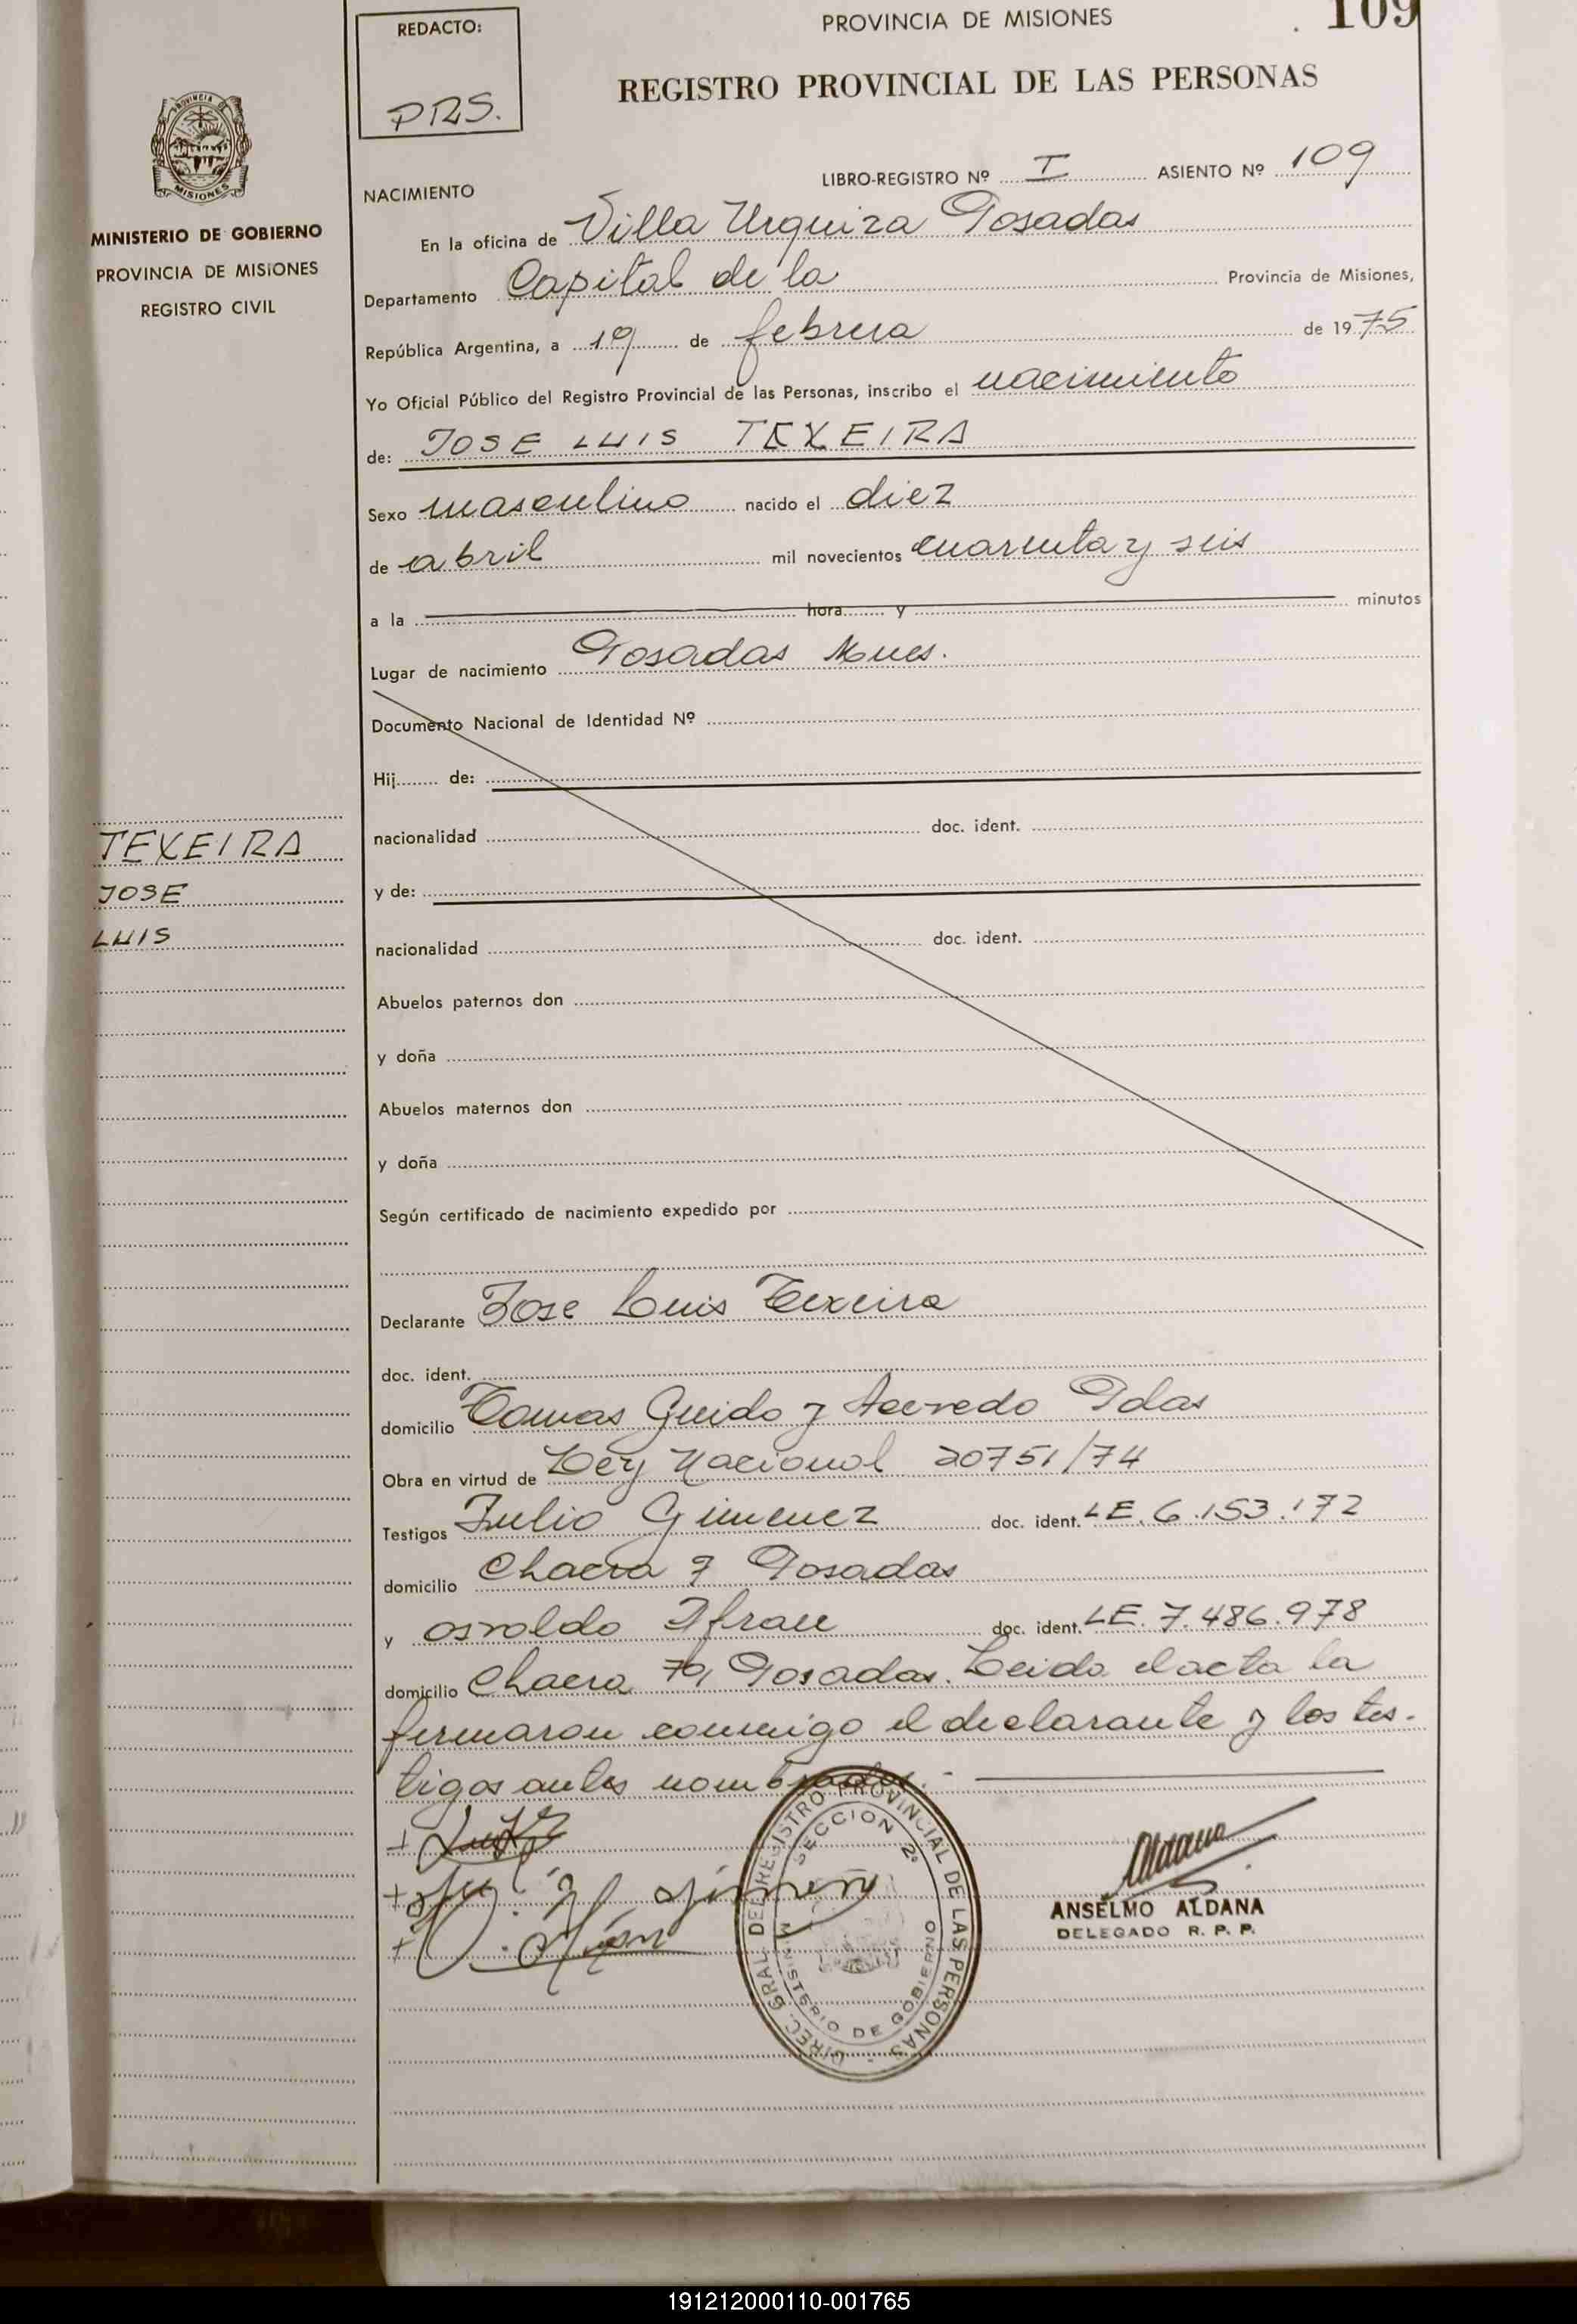 109
REDACTO:
PRS.
PROVINCIA DE MISIONES
REGISTRO PROVINCIAL DE LAS PERSONAS
MISIONES
MINISTERIO DE GOBIERNO
PROVINCIA DE MISIONES
REGISTRO CIVIL
LIBRO-REGISTRO Nº I ASIENTO Nº 109
NACIMIENTO
En la oficina de Villa Urquiza Posadas
Departamento Capital de la Provincia de Misiones,
República Argentina, a 19 de febrero de 1975
Yo Oficial Público del Registro Provincial de las Personas, inscribo el nacimiento
de: JOSE LUIS TEXEIRA
Sexo masculino nacido el diez
de abril mil novecientos cuarenta y seis
a la hora y minutos
Lugar de nacimiento Posadas Mnes.
Documento Nacional de Identidad Nº
Hij de:
nacionalidad doc. ident.
y de:
nacionalidad doc. ident.
Abuelos paternos don
y doña
Abuelos maternos don
y doña
Según certificado de nacimiento expedido por
TEXEIRA
JOSE
LUIS
Declarante Jose Luis Texeira
doc. ident.
domicilio Tomas Guido y Acevedo Pdas
Obra en virtud de Ley Nacional 20751/74
Testigos Julio Gimenez doc. ident. LE. 6.153.172
domicilio Chacra 7 Posadas
y Osvaldo Ifran doc. ident. LE. 7.486.978
domicilio Chacra 70, Posadas. Leida el acta la
firmaron conmigo el declarante y los tes-
tigos antes nombrados.-
DIREC. GRAL. DEL REGISTRO PROVINCIAL DE LAS PERSONAS
SECCION 2ª
MINISTERIO DE GOBIERNO
Aldana
ANSELMO ALDANA
DELEGADO R. P. P.
191212000110-001765